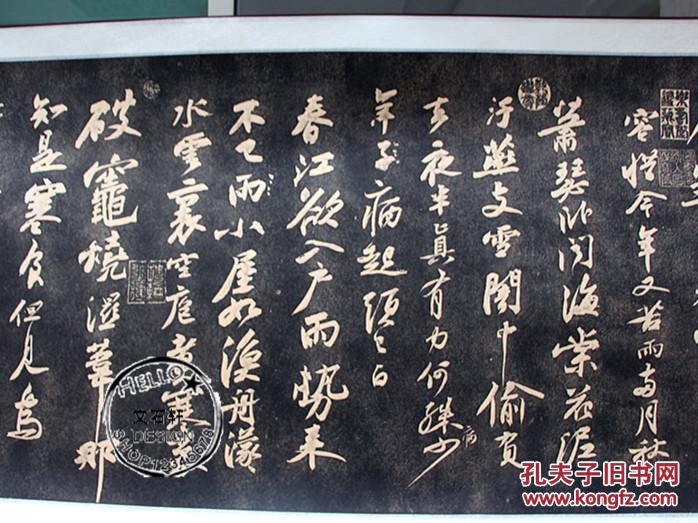 容惜今年又苦雨兩月秋
蕭瑟卧聞海棠花泥
汙燕支雪闇中偷負
去夜半真有力何殊少
病
年子病起頭已白
春江欲入戶雨勢來
不已雨小屋如漁舟濛
水雲裏空庖煮寒菜
破竈燒濕葦那
知是寒食但見烏
HELLO
文石轩
DESIGN
SHOP12345678
孔夫子旧书网
www.kongfz.com